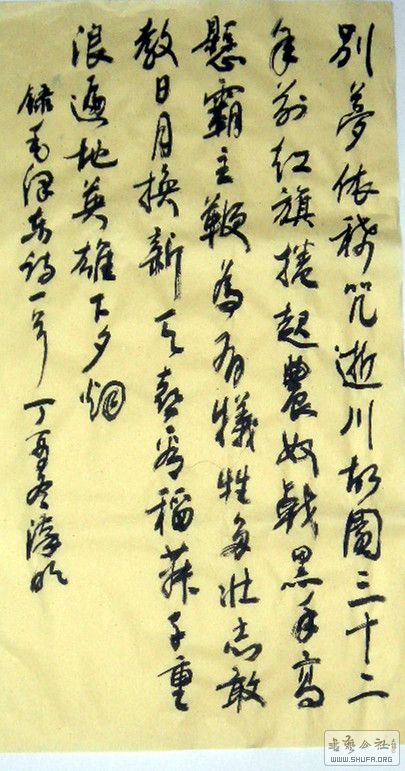 别夢依稀咒逝川故園三十二
年前红旗捲起農奴戟黑手高
懸霸主鞭為有犧牲多壮志敢
教日月换新天喜看稻菽千重
浪遍地英雄下夕烟
録毛泽东诗一首丁亥冬
书艺公社
WWW.SHUFA.ORG